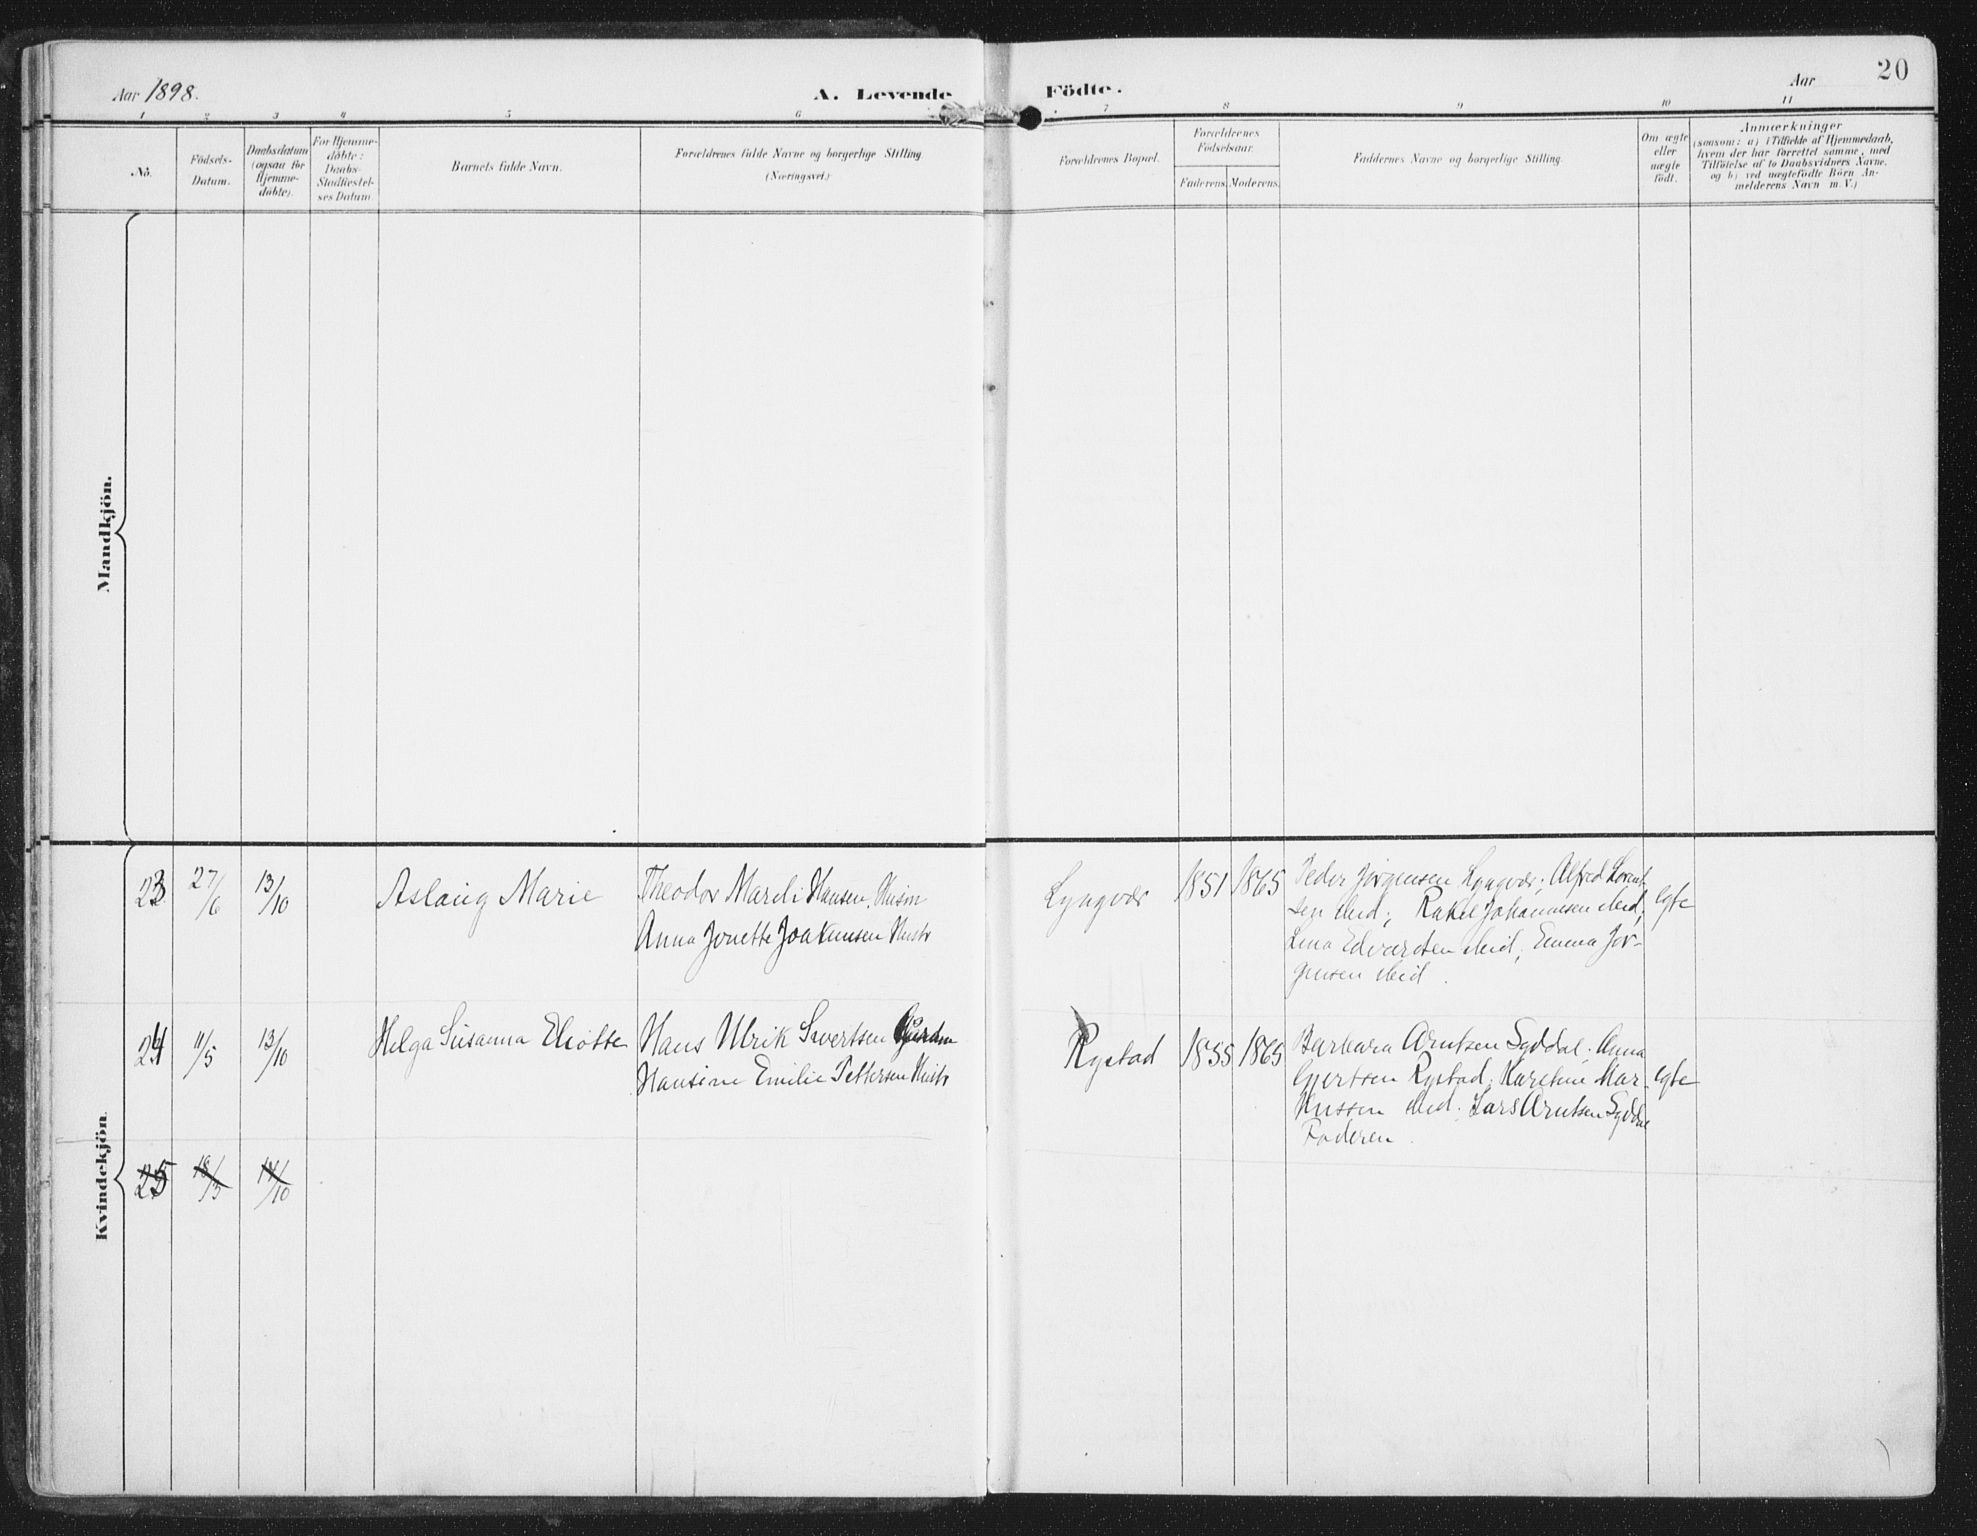 Aar 1898.
A. Levende
Födte.
Aar
20
1 2 3 4 5 6 7 8 9 10 11
No.
Födsels-
Datum.
Daabsdatum
(ogsaa for
Hjemme-
döbte).
For Hjemme-
döbte:
Daabs-
Stadfæstel-
ses Datum.
Barnets fulde Navn.
Forældrenes fulde Navne og borgerlige Stilling
(Næringsvei.)
Forældrenes Bopæl.
Forældrenes
Födselsaar.
Faderens. Moderens.
Faddernes Navne og borgerlige Stilling.
Om ægte
eller
uægte
födt.
Anmærkninger
(saasom: a) i Tilfælde af Hjemmedaab,
hvem der har forrettet samme, med
Tilföielse af to Daabsvidners Navne.
og b) ved uægtefödte Börn An-
melderens Navn m. V.)
Mandkjön.
Kvindekjön.
23 27/6 13/10 Aslaug Marie
Theodor Mareli Hansen, Husm
Anna Jonette Joakimsen Hustr
Lyngvær 1851 1865
Peder Jörgensen Lyngvær; Alfred Lorent
sen ibid; Rakel Johannesen ibid;
Lina Edvardsen ibid; Emma Jör-
gensen ibid.
egte
24 11/5 13/10 Helga Susanna Eliotte
Hans Ulrik Sivertsen
Hansine Emilie Pettersen Hustr
Rystad 1855 1865
Barbara Arntzen Syddal; Anna
Gjertsen Rystad; Karoline Mar-
kussen ibid; Lars Arntsen Syddal
Faderen.
egte
25 18/5 14/10